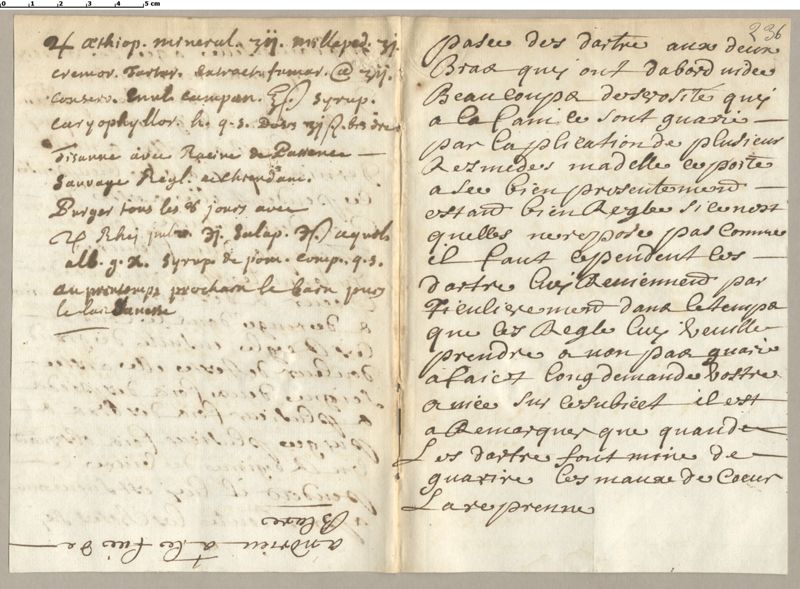 0 1 2 3 4 5 cm
♃ æthiop. mineral. ʒij. milleped. ʒj.
cremor. Tartar. extract. fumar. @ ʒij.
conserv. Enul campan. ℥ß syrup.
caryophyllor. h. q. s. Dosis ʒjß. bis die
Tisanne avec Racine de Patience
sauvage Régl. et chiendant.
Purger tous les 8 jours avec
♃ Rhej pulv. ℈j. Jalap. ℈ß aquila
alb. g. x. Syrup de pom. comp. q. s.
au printemps prochain le bain puis
le lait danesse
andrieu a la fué de
Blaze
236
pasee des dartre aux deux
Bras quy ont dabord uidee
Beaucoupx de serosité quy
a la fam le sont guari
par laplication de plusieur
Resmèdes madelle ce poite
asée bien presentemend
estand bien Regle si ce nest
quelles ne repose pas comme
il faut cependent ces
dartre luy Reuiennend par
ticulieremend dans le temps
que les Regle luy veuille
prendre a non pas guari
a faict long demande vostre
auiée sur ce subiect il est
a Remarquer que quande
Les dartre font mine de
guarire les maux de Coeur
La reprenne